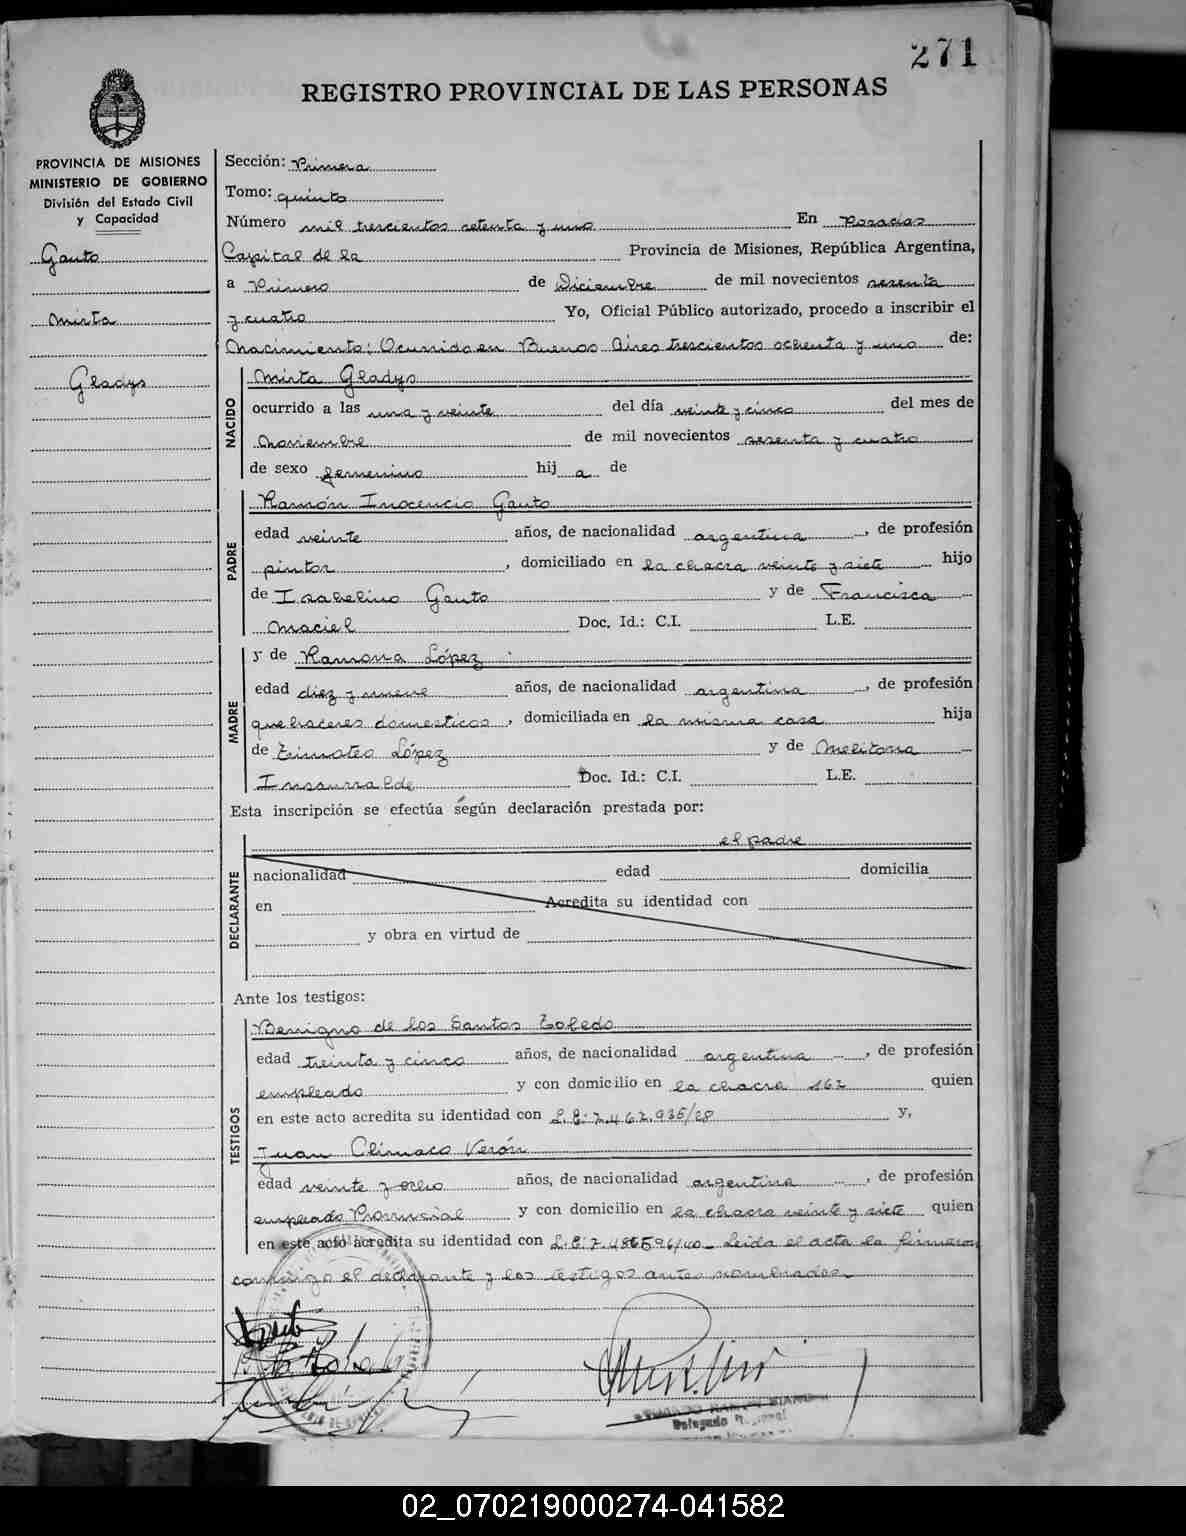 271
REGISTRO PROVINCIAL DE LAS PERSONAS
PROVINCIA DE MISIONES
MINISTERIO DE GOBIERNO
División del Estado Civil
y Capacidad
Gauto
Mirta
Gladys
Sección: Primera
Tomo: quinto
Número mil trescientos setenta y uno En Posadas
Capital de la Provincia de Misiones, República Argentina,
a Primero de Diciembre de mil novecientos sesenta
y cuatro Yo, Oficial Público autorizado, procedo a inscribir el
Nacimiento: Ocurrido en Buenos Aires trescientos ochenta y uno de:
NACIDO
Mirta Gladys
ocurrido a las una y veinte del día veinte y cinco del mes de
Noviembre de mil novecientos sesenta y cuatro
de sexo femenino hij a de
PADRE
Ramón Inocencio Gauto
edad veinte años, de nacionalidad argentina, de profesión
pintor, domiciliado en la chacra veinte y siete hijo
de Isabelino Gauto y de Francisca
Maciel Doc. Id.: C.I. L.E.
MADRE
y de Ramona López
edad diez y nueve años, de nacionalidad argentina, de profesión
quehaceres domesticos, domiciliada en la misma casa hija
de Timoteo López y de Melitona
Insaurralde Doc. Id.: C.I. L.E.
Esta inscripción se efectúa según declaración prestada por:
el padre
DECLARANTE
nacionalidad edad domicilia
en Acredita su identidad con
y obra en virtud de
Ante los testigos:
TESTIGOS
Benigno de los Santos Toledo
edad treinta y cinco años, de nacionalidad argentina, de profesión
empleado y con domicilio en la chacra 162 quien
en este acto acredita su identidad con L.E: 7.462.936/28 y,
Juan Climaco Verón
edad veinte y ocho años, de nacionalidad argentina, de profesión
empleado Provincial y con domicilio en la chacra veinte y siete quien
en este acto acredita su identidad con L.E: 7.486596/40_ Leida el acta la firmaron
conmigo el declarante y los testigos antes nombrados.
Delegado
02_070219000274-041582